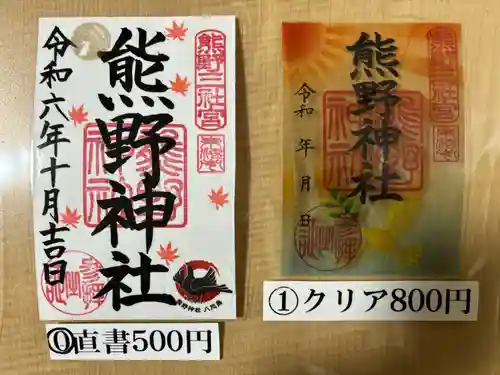 熊野三社宮
熊野神社
令和六年十月吉日
熊野神社 八咫烏
⓪直書500円
熊野三社宮
熊野神社
令和 年 月 日
①クリア800円